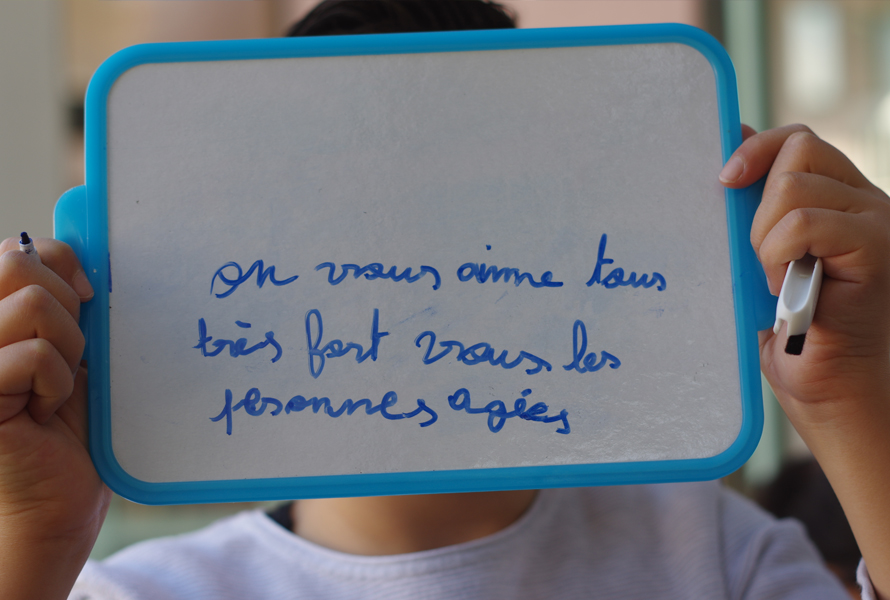 on vous aime tous
très fort vous les
personnes agées